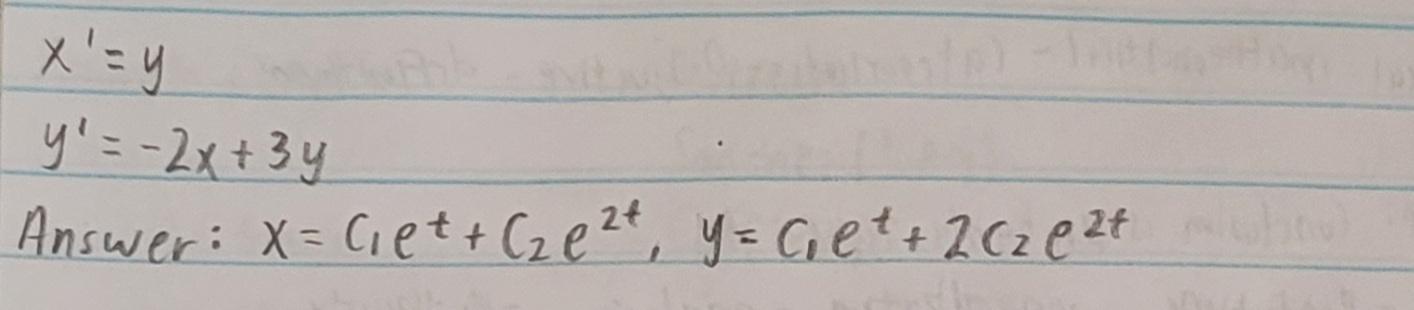 x' = y
y' = -2x + 3y
Answer: x = C₁e^t + C₂e^2t, y = C₁e^t + 2C₂e^2t